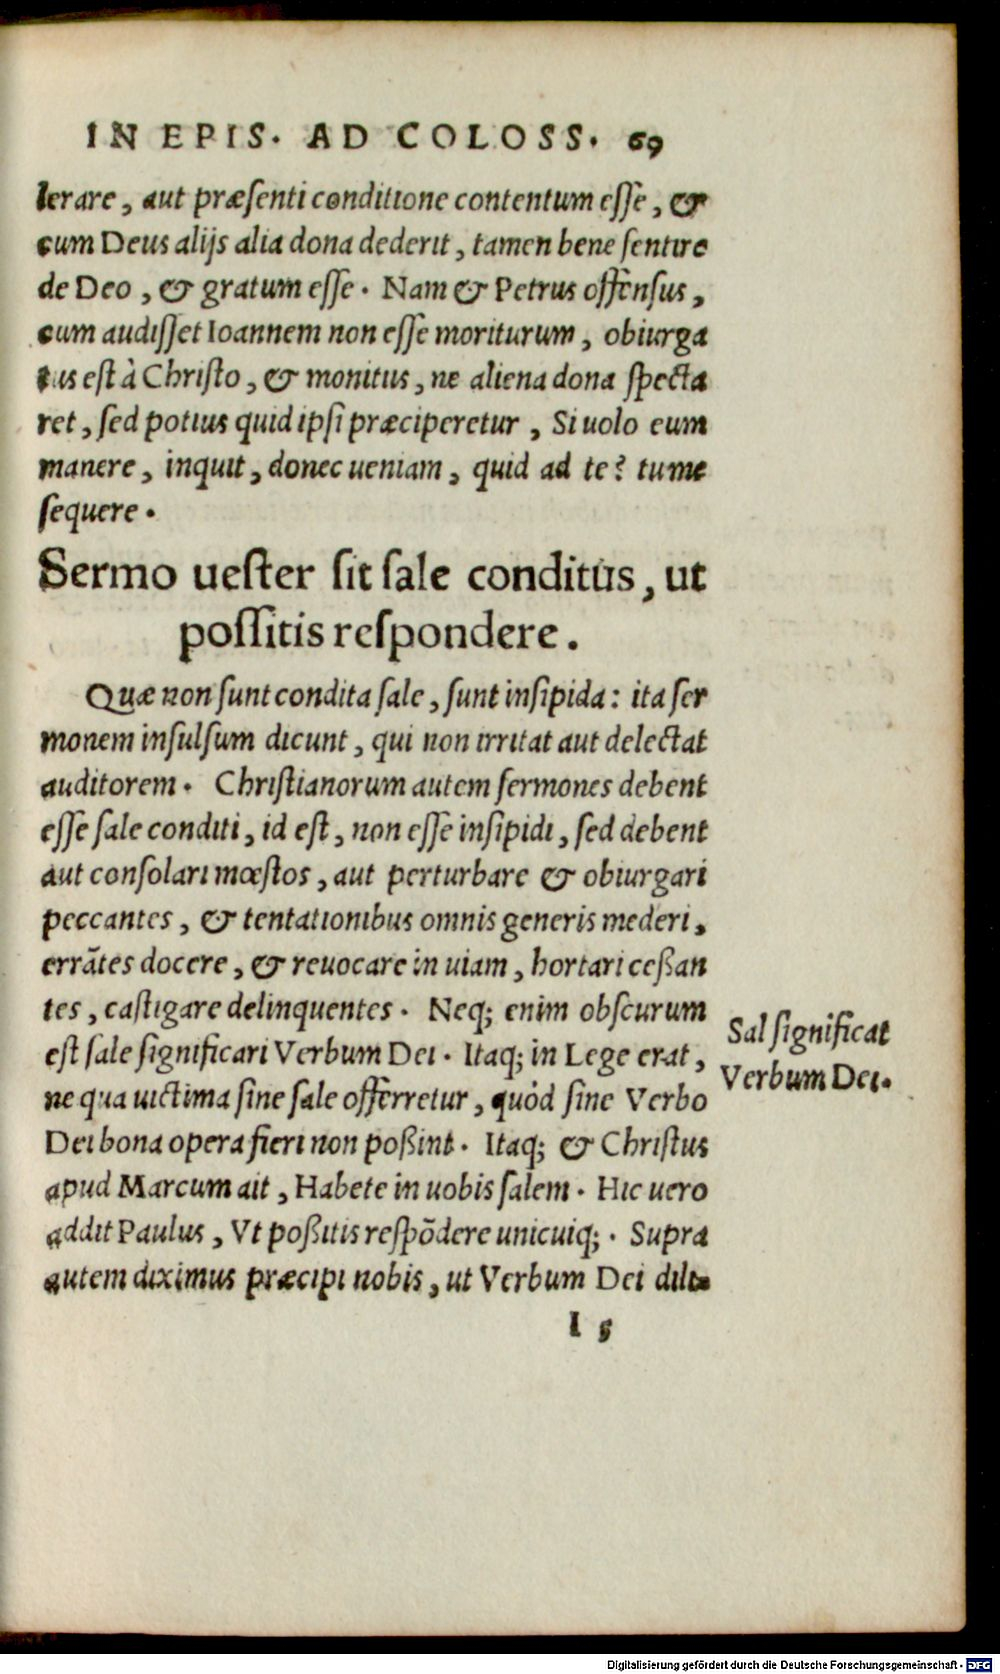 IN EPIS. AD COLOSS. 69
lerare, aut præſenti conditione contentum eſſe, &
cum Deus alijs alia dona dederit, tamen bene ſentire
de Deo, & gratum eſſe. Nam & Petrus offenſus,
cum audiſſet Ioannem non eſſe moriturum, obiurga
tus eſt à Chriſto, & monitus, ne aliena dona ſpecta
ret, ſed potius quid ipſi præciperetur, Si uolo eum
manere, inquit, donec ueniam, quid ad te? tu me
ſequere.
Sermo ueſter ſit ſale conditus, ut
poſſitis reſpondere.
Quæ non ſunt condita ſale, ſunt inſipida: ita ſer
monem inſulſum dicunt, qui non irritat aut delectat
auditorem. Chriſtianorum autem ſermones debent
eſſe ſale conditi, id eſt, non eſſe inſipidi, ſed debent
aut conſolari mœſtos, aut perturbare & obiurgari
peccantes, & tentationibus omnis generis mederi,
errãtes docere, & reuocare in uiam, hortari ceßan
tes, caſtigare delinquentes. Neq; enim obſcurum
eſt ſale ſignificari Verbum Dei. Itaq; in Lege erat,
ne qua uictima ſine ſale offerretur, quòd ſine Verbo
Dei bona opera fieri non poßint. Itaq; & Chriſtus
apud Marcum ait, Habete in uobis ſalem. Hic uero
addit Paulus, Vt poßitis reſpõdere unicuiq;. Supra
autem diximus præcipi nobis, ut Verbum Dei dili
I 5
Sal ſignificat
Verbum Dei.
Digitalisierung gefördert durch die Deutsche Forschungsgemeinschaft - DFG